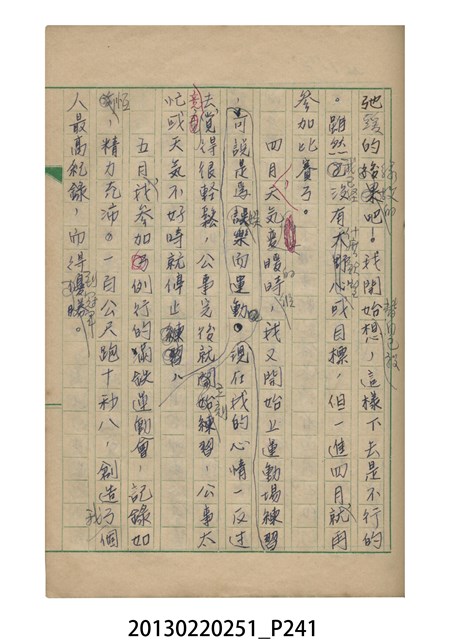 弛緩的結果吧！我開始想，這樣下去是不行的
。雖然沒有大野心或目標，但一進四月就再
參加比賽了。
四月天氣變暖時，我又開始上運動場練習
，可說是為娛樂而運動。現在我的心情一反過
去，覺得很輕鬆，公事完後就開始練習，公事太
忙或天氣不好時就停止練習。
五月我參加了例行的滿鉄運動會，記錄如
恒，精力充沛。一百公尺跑十秒八，創造了個
人最高紀錄，而得優勝。
20130220251_P241